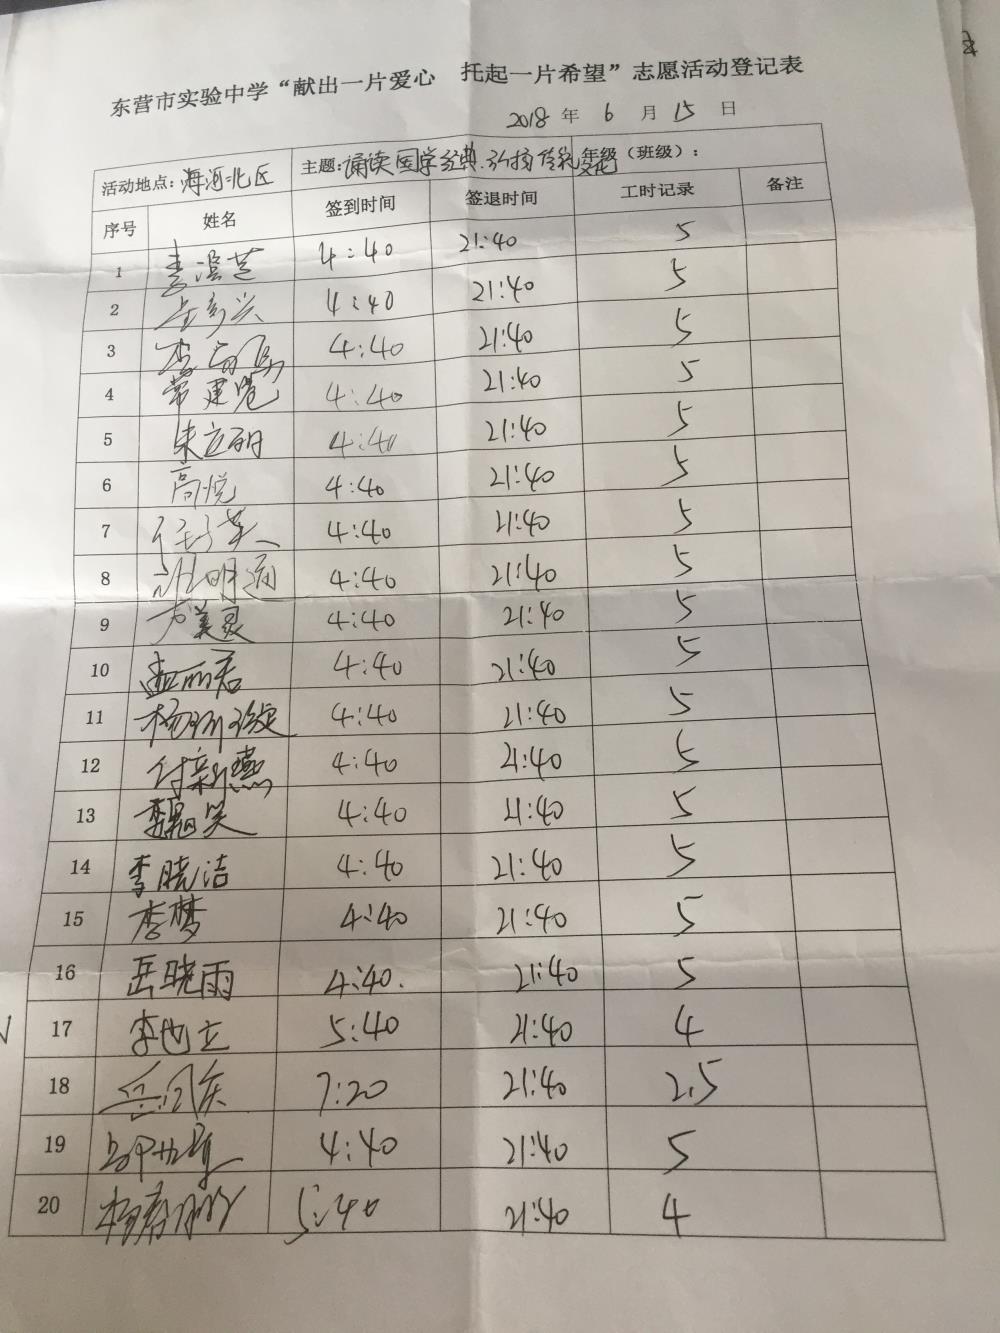 东营市实验中学“献出一片爱心 托起一片希望”志愿活动登记表
2018 年 6 月 15 日
活动地点：海河北区 主题：诵读国学经典.弘扬传统文化 年级（班级）：
序号 姓名 签到时间 签退时间 工时记录 备注
1 4:40 21:40 5
2 4:40 21:40 5
3 4:40 21:40 5
4 4:40 21:40 5
5 朱立明 4:40 21:40 5
6 高悦 4:40 21:40 5
7 4:40 21:40 5
8 4:40 21:40 5
9 4:40 21:40 5
10 孟丽君 4:40 21:40 5
11 4:40 21:40 5
12 付新燕 4:40 21:40 5
13 4:40 21:40 5
14 李晓洁 4:40 21:40 5
15 李梦 4:40 21:40 5
16 岳晓雨 4:40. 21:40 5
17 4 5:40 21:40
18 7:20 21:40 2.5
19 4:40 21:40 5
20 5:40 21:40 4